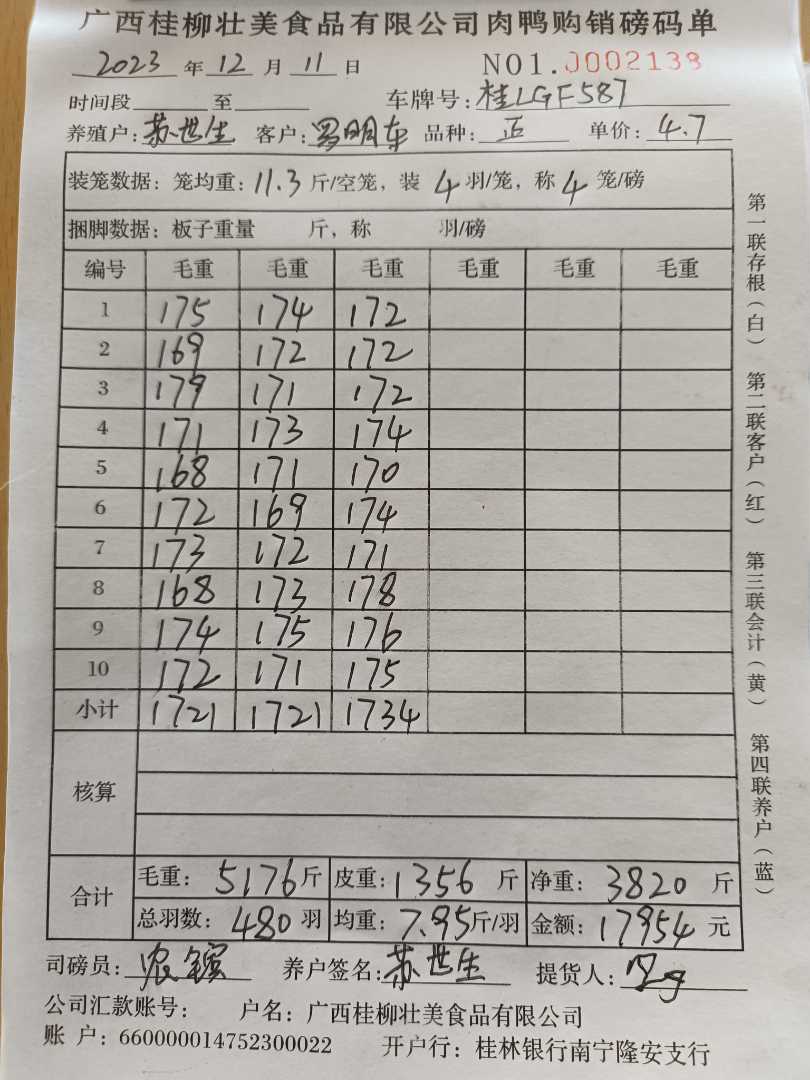 广西桂柳壮美食品有限公司肉鸭购销磅码单
2023 年 12 月 11 日 NO1.J002138
时间段 至 车牌号: 桂LGF587
养殖户: 苏世生 客户: 罗明东 品种: 正 单价: 4.7
装笼数据: 笼均重: 11.3 斤/空笼, 装 4 羽/笼, 称 4 笼/磅
捆脚数据: 板子重量 斤, 称 羽/磅
编号 毛重 毛重 毛重 毛重 毛重 毛重
1 175 174 172
2 169 172 172
3 179 171 172
4 171 173 174
5 168 171 170
6 172 169 174
7 173 172 171
8 168 173 178
9 174 175 176
10 172 171 175
小计 1721 1721 1734
核算
合计 毛重: 5176 斤 皮重: 1356 斤 净重: 3820 斤
总羽数: 480 羽 均重: 7.95 斤/羽 金额: 17954 元
司磅员: 养户签名: 苏世生 提货人:
公司汇款账号: 户名: 广西桂柳壮美食品有限公司
账 户: 660000014752300022 开户行: 桂林银行南宁隆安支行
第一联存根(白) 第二联客户(红) 第三联会计(黄) 第四联养户(蓝)